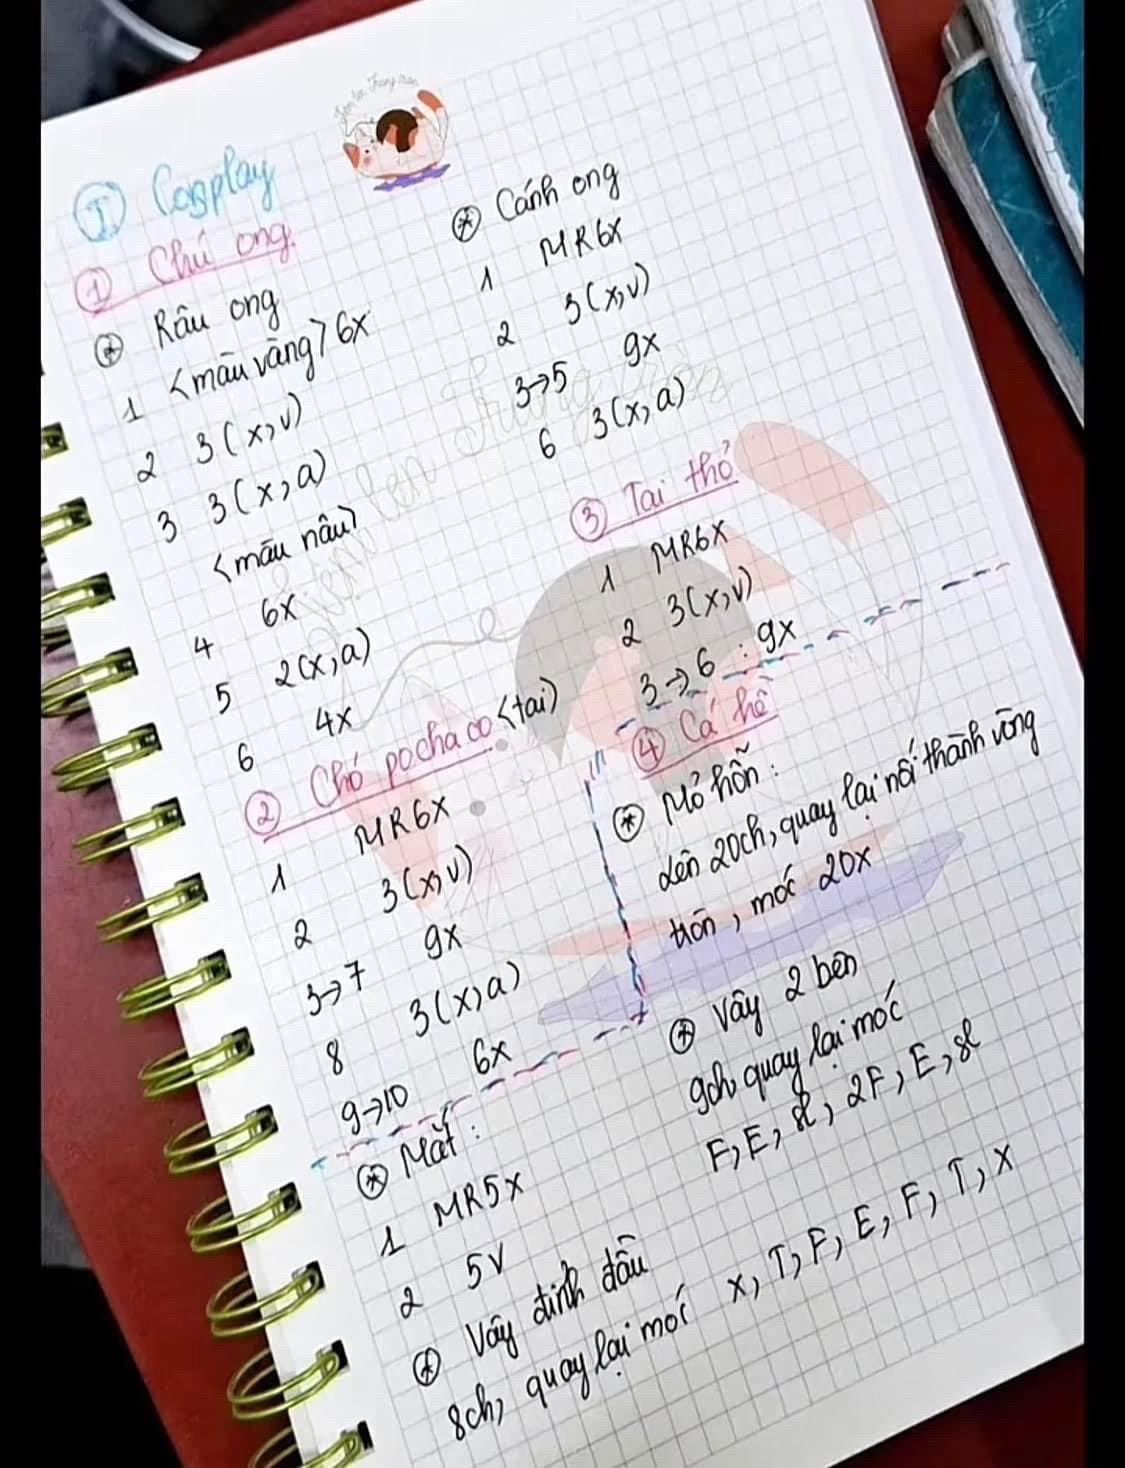 I Cosplay
1 Chú ong.
* Râu ong
1 <màu vàng> 6x
2 3(x,v)
3 3(x,a)
<màu nâu>
4 6x
5 2(x,a)
6 4x
* Cánh ong
1 MR6x
2 3(x,v)
3→5 9x
6 3(x,a)
2 Chó pochacco <tai)
1 MR6x
2 3(x,v)
3→7 9x
8 3(x,a)
9→10 6x
3 Tai thỏ
1 MR6x
2 3(x,v)
3→6 : 9x
4 Cá hề
* Mỏ hỗn :
Lên 20ch, quay lại nối thành vòng
tròn, móc 20x
* Vây 2 bên
9ch, quay lại móc
F, E, sl, 2F, E, sl
* Mắt :
1 MR5x
2 5v
* Vây đỉnh đầu
8ch, quay lại móc x, T, F, E, F, T, x